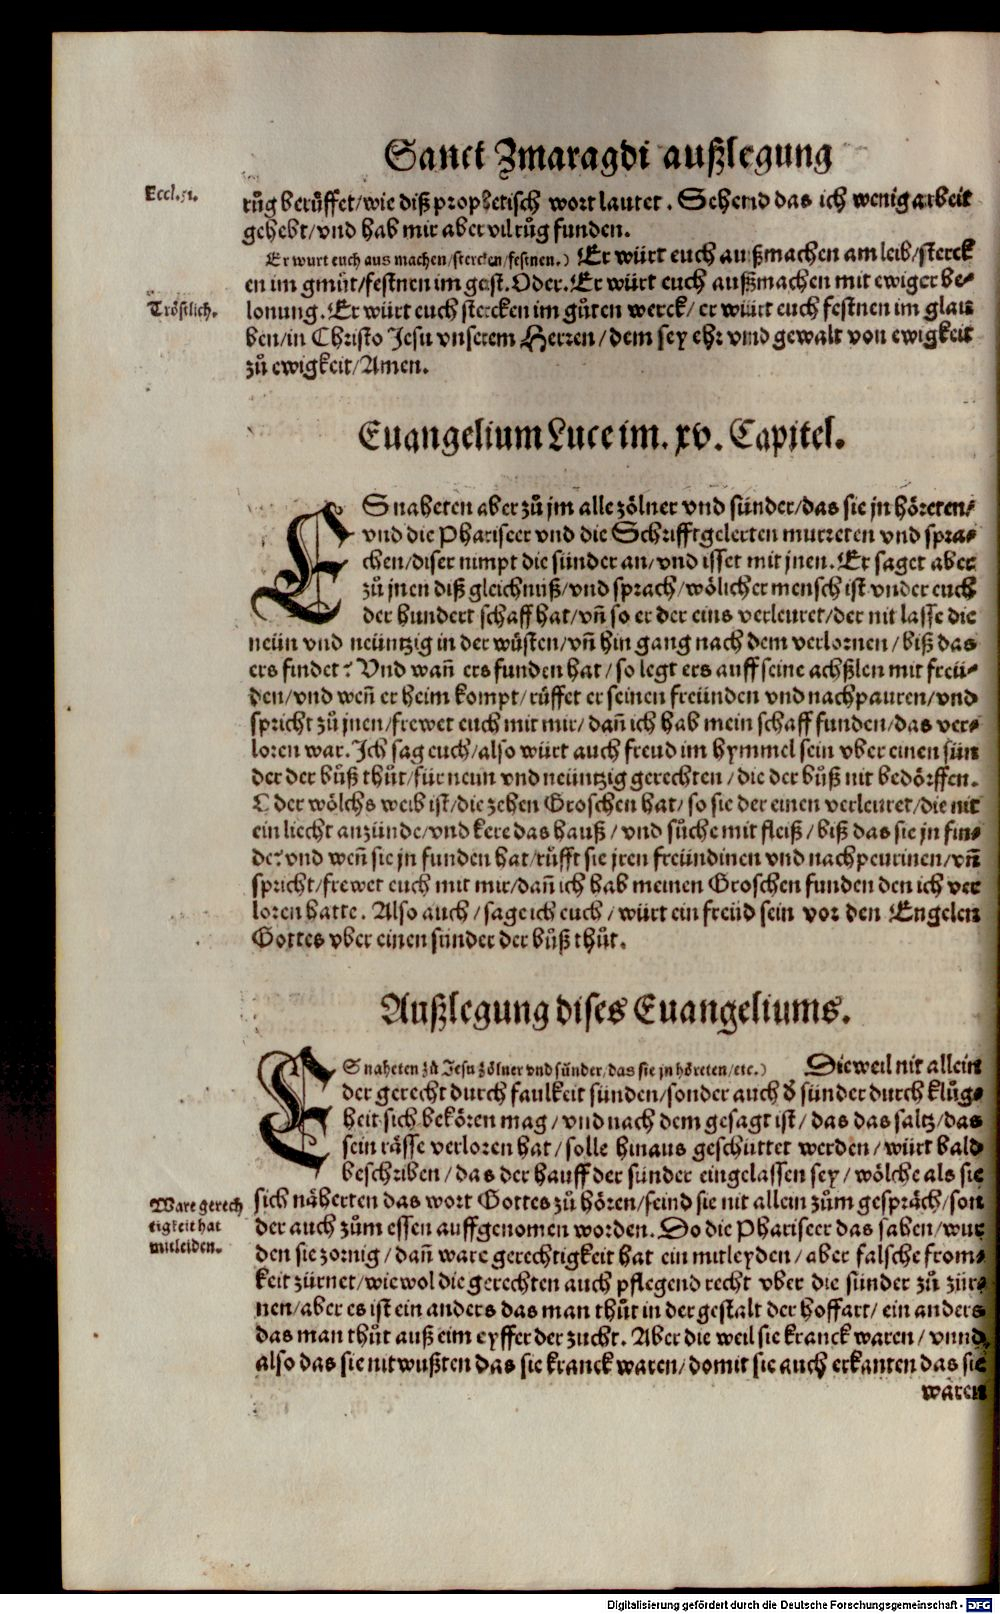 Sanct Zmaragdi außlegung
Eccl. 51.
růg berůffet/wie diß prophetisch wort lautet. Sehend das ich wenig arbeit
gehebt/vnd hab mir aber vil růg funden.
Er wurt euch aus machen/stercken/festnen.) Er würt euch außmachen am leib/sterck
en im gmüt/festnen im geist. Oder. Er würt euch außmachen mit ewiger be-
Tröstlich.
lonung. Er würt euch stercken im gůten werck/ er würt euch festnen im glau
ben/in Christo Jesu vnserem Herren/dem sey ehr vnnd gewalt von ewigkeit
zů ewigkeit/Amen.
Euangelium Luce im. xv. Capitel.
ES naheten aber zů jm alle zölner vnd sünder/das sie jn höreten/
vnd die Phariseer vnd die Schrifftgelerten murreten vnd spra-
chen/diser nimpt die sünder an/vnd isset mit jnen. Er saget aber
zů jnen diß gleichnuß/vnd sprach/wölicher mensch ist vnder euch
der hundert schaff hat/vñ so er der eins verleuret/der nit lasse die
neün vnd neüntzig in der wůsten/vñ hin gang nach dem verlornen/biß das
ers findet? Vnd wañ ers funden hat/so legt ers auff seine achßlen mit freü-
den/vnd weñ er heim kompt/rüffet er seinen freünden vnd nachpauren/vnd
spricht zů jnen/frewet euch mit mir/dañ ich hab mein schaff funden/das ver-
loren war. Ich sag euch/also würt auch freud im hymmel sein vber einen sün
der der bůß thůt/für neün vnd neüntzig gerechten/die der bůß nit bedörffen.
Oder wölchs weib ist/die zehen Groschen hat/so sie der einen verleuret/die nit
ein liecht anzünde/vnd kere das hauß/vnd sůche mit fleiß/biß das sie jn fin-
de? vnd weñ sie jn funden hat/rüfft sie jren freündinen vnd nachpeurinen/vñ
spricht/frewet euch mit mir/dañ ich hab meinen Groschen funden den ich ver
loren hatte. Also auch/sage ich euch/würt ein freüd sein vor den Engelen
Gottes vber einen sünder der bůß thůt.
Außlegung dises Euangeliums.
ES naheten zů Jesu zölner vnd sünder/das sie jn höreten/etc.) Die weil nit allein
der gerecht durch faulkeit sünden/sonder auch d' sünder durch klůg-
heit sich bekören mag/vnd nach dem gesagt ist/das das saltz/das
sein rässe verloren hat/solle hinaus geschüttet werden/würt bald
beschriben/das der hauff der sünder eingelassen sey/wölche als sie
Ware gerech
tigkeit hat
mitleiden.
sich näherten das wort Gottes zů hören/seind sie nit allein zům gespräch/son
der auch zům essen auffgenomen worden. Do die Phariseer das sahen/wur
den sie zornig/dañ ware gerechtigkeit hat ein mitleyden/aber falsche from-
keit zürnet/wiewol die gerechten auch pflegend recht vber die sünder zů zür-
nen/aber es ist ein anders das man thůt in der gestalt der hoffart/ein anders
das man thůt auß eim eyffer der zucht. Aber die weil sie kranck waren/vnnd
also das sie nit wußten das sie kranck waren/domit sie auch erkanten das sie
waren
Digitalisierung gefördert durch die Deutsche Forschungsgemeinschaft - DFG